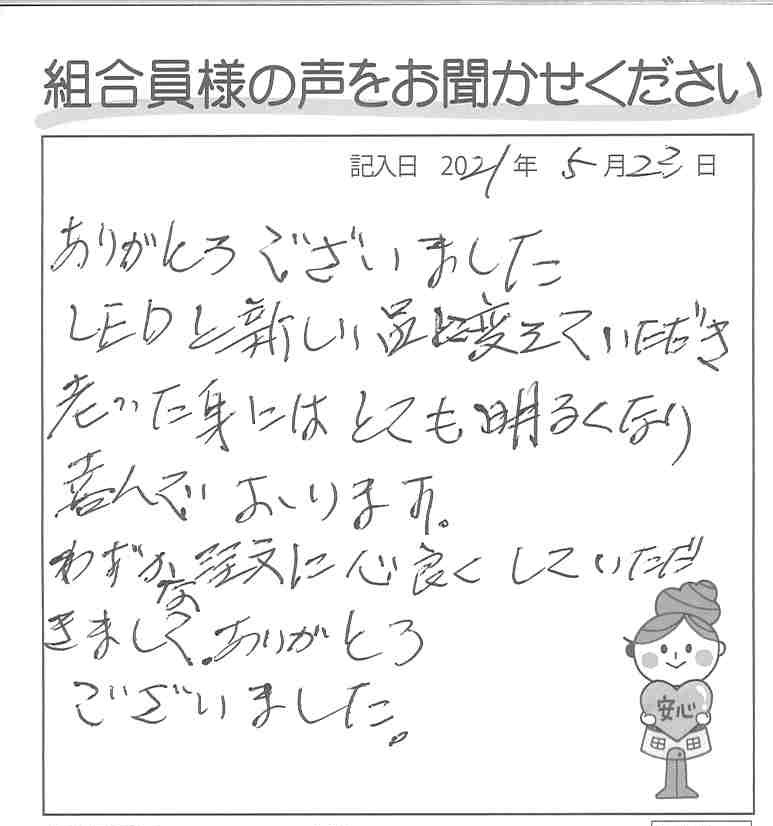 組合員様の声をお聞かせください
記入日 2021年 5月23日
ありがとう ございました
LEDと新しい品に変えていただき
老いた身にはとても明るくなり
喜んでいおります。
わずかな注文に心良くしていただ
きまして、ありがとう
ございました。
安心